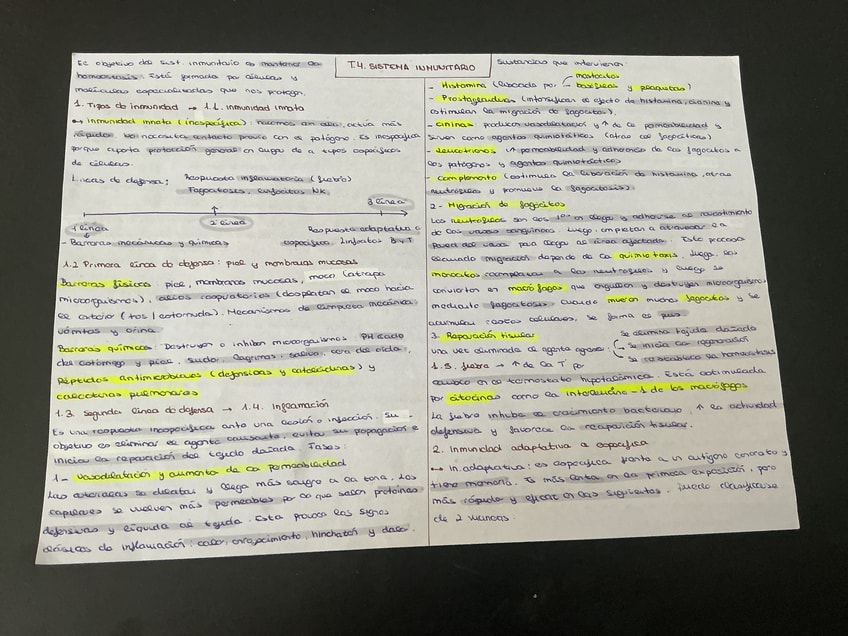 T.4. SISTEMA INMUNITARIO
El objetivo del sist. inmunitario es mantener la
homeostasis. Está formado por células y
moléculas especializadas que nos protegen.
1. Tipos de inmunidad → 1.1. Inmunidad innata
↦ Inmunidad innata (inespecífica): nacemos con ella, actúa más
rápido. No necesita contacto previo con el patógeno. Es inespecífica
porque aporta protección general en lugar de a tipos específicos
de células.
Líneas de defensa: Respuesta inflamatoria (fiebre)
Fagocitosis, linfocitos NK.
3 línea
1 línea
2 línea
Respuesta adaptativa o
- Barreras mecánicas y químicas
específica. Linfocitos B y T
1.2 Primera línea de defensa: piel y membranas mucosas
Barreras físicas: piel, membranas mucosas, moco (atrapa
microorganismos), cilios respiratorios (desplazan el moco hacia
el exterior (tos/estornudo). Mecanismos de limpieza mecánica:
vómitos y orina
Barreras químicas: Destruyen o inhiben microorganismos. PH ácido
del estómago y piel, sudor, lágrimas, saliva, cera del oído,
Péptidos antimicrobianos (defensinas y catelicidinas) y
colectinas pulmonares
1.3. Segunda línea de defensa → 1.4. Inflamación
Es una respuesta inespecífica ante una lesión o infección. Su
objetivo es eliminar el agente causante, evitar su propagación e
iniciar la reparación del tejido dañado. Fases:
1- Vasodilatación y aumento de la permeabilidad
Las arteriolas se dilatan y llega más sangre a la zona. Los
capilares se vuelven más permeables por lo que salen proteínas
defensivas y líquido al tejido. Esta provoca los signos
clásicos de inflamación: calor, enrojecimiento, hinchazón y dolor.
Sustancias que intervienen:
- Histamina (liberada por mastocitos
basófilos y plaquetas)
- Prostaglandinas (intensifican el efecto de histamina, cinina y
estimulan la migración de fagocitos).
- Cininas: producen vasodilatación y ↑ de la permeabilidad y
sirven como agentes quimiotácticos (atrae a fagocitos)
- Leucotrienos (↑ permeabilidad y adherencia de los fagocitos a
los patógenos y agentes quimiotácticos
- Complemento (estimula la liberación de histamina, atrae
neutrófilos y promueve la fagocitosis)
2- Migración de fagocitos
Los neutrófilos son los 1ºs en llegar y adherirse al revestimiento
de los vasos sanguíneos. Luego, empiezan a atravesar la
pared del vaso para llegar al área afectada. Este proceso
llamado migración depende de la quimiotaxis, luego, los
monocitos reemplazan a los neutrófilos y luego se
convierten en macrófagos que engullen y destruyen microorganismos
mediante fagocitosis. Cuando mueren muchos fagocitos y se
acumulan restos celulares, se forma el pus
3. Reparación tisular
Se elimina tejido dañado
una vez eliminado el agente agresor: Se inicia la regeneración
Se restablece la homeostasis
1.5. Fiebre → ↑ de la Tª por
cambio en el termostato hipotalámico. Está estimulada
por citocinas como la interleucina-1 de los macrófagos
La fiebre inhibe el crecimiento bacteriano, ↑ la actividad
defensiva y favorece la reparación tisular.
2. Inmunidad adaptativa o específica
↦ In. adaptativa: es específica frente a un antígeno concreto y
tiene memoria. Es más lenta en la primera exposición, pero
más rápida y eficaz en las siguientes. Puede clasificarse
de 2 maneras.